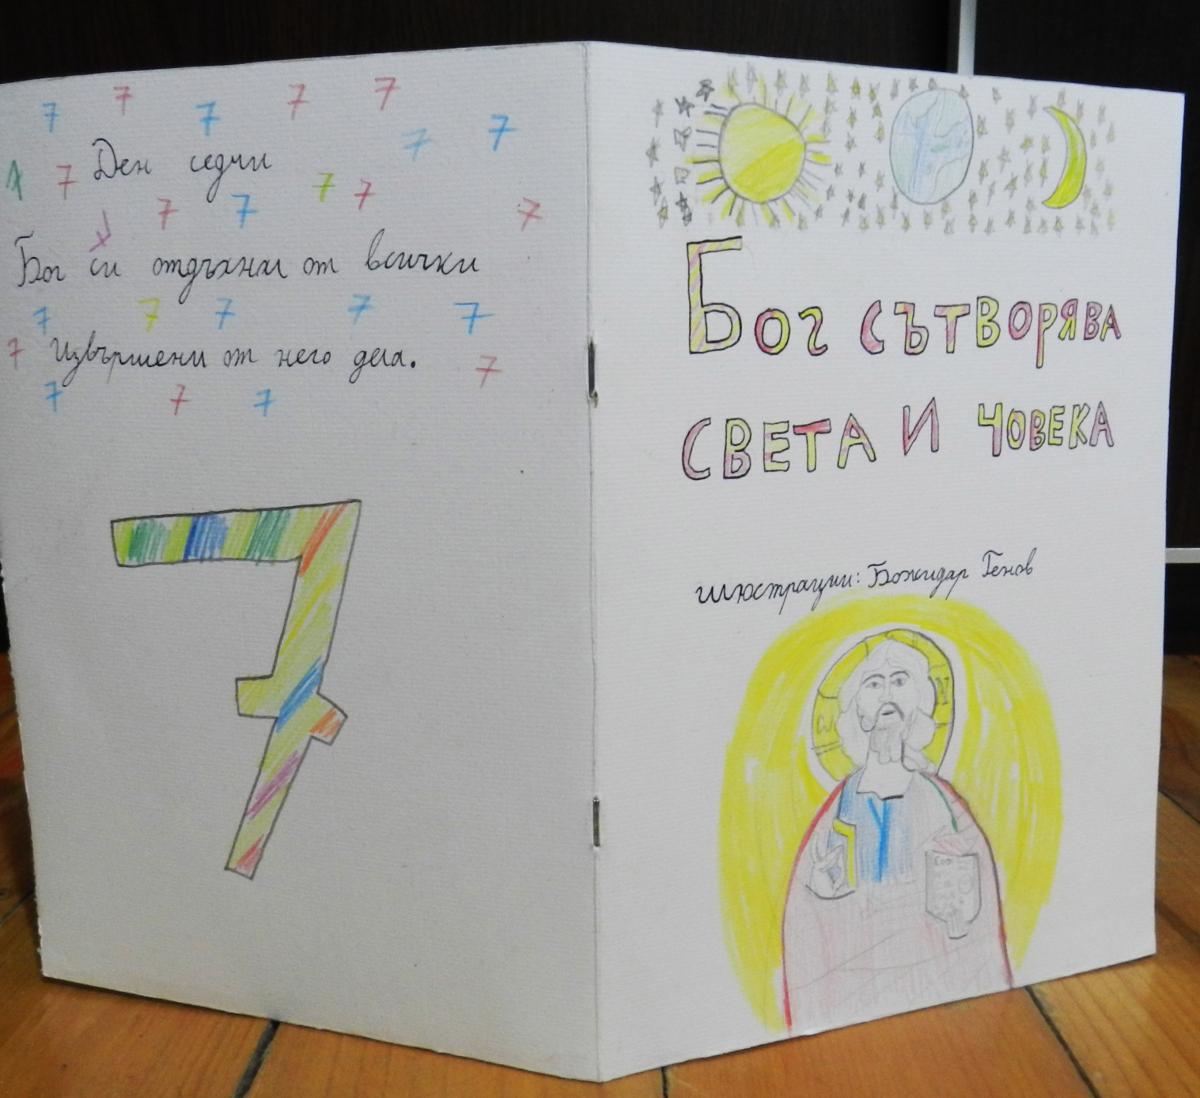 Ден седми
Бог си отдъхнал от всички
извършени от него дела.
7
Бог сътворява
света и човека
илюстрации: Божидар Генов